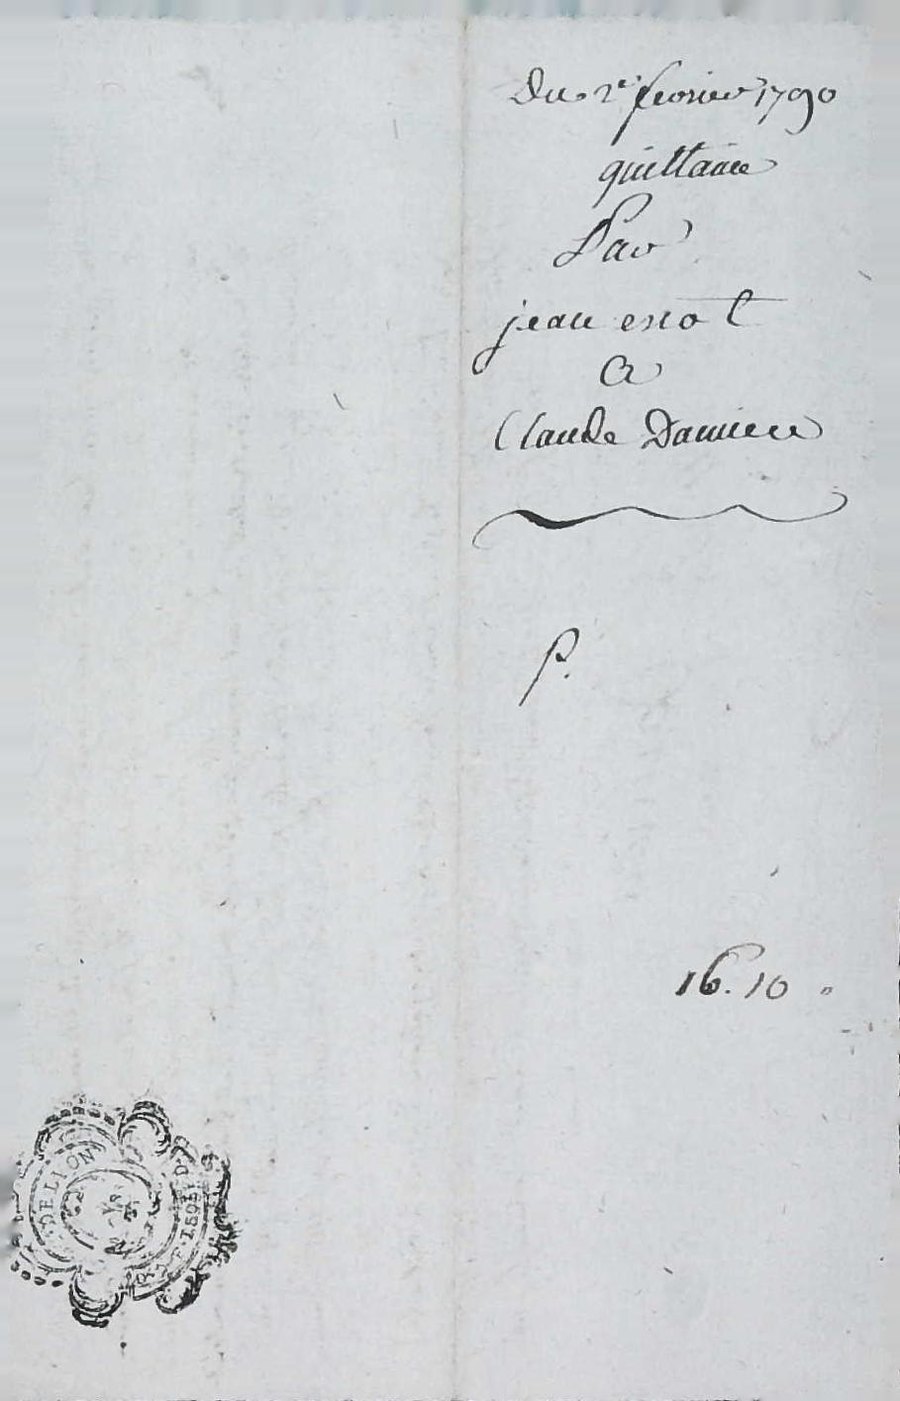 Du 2e fevrier 1790
quittance
Par
jean esnot
A
Claude Damiere
P.
16. 10 "
DELION